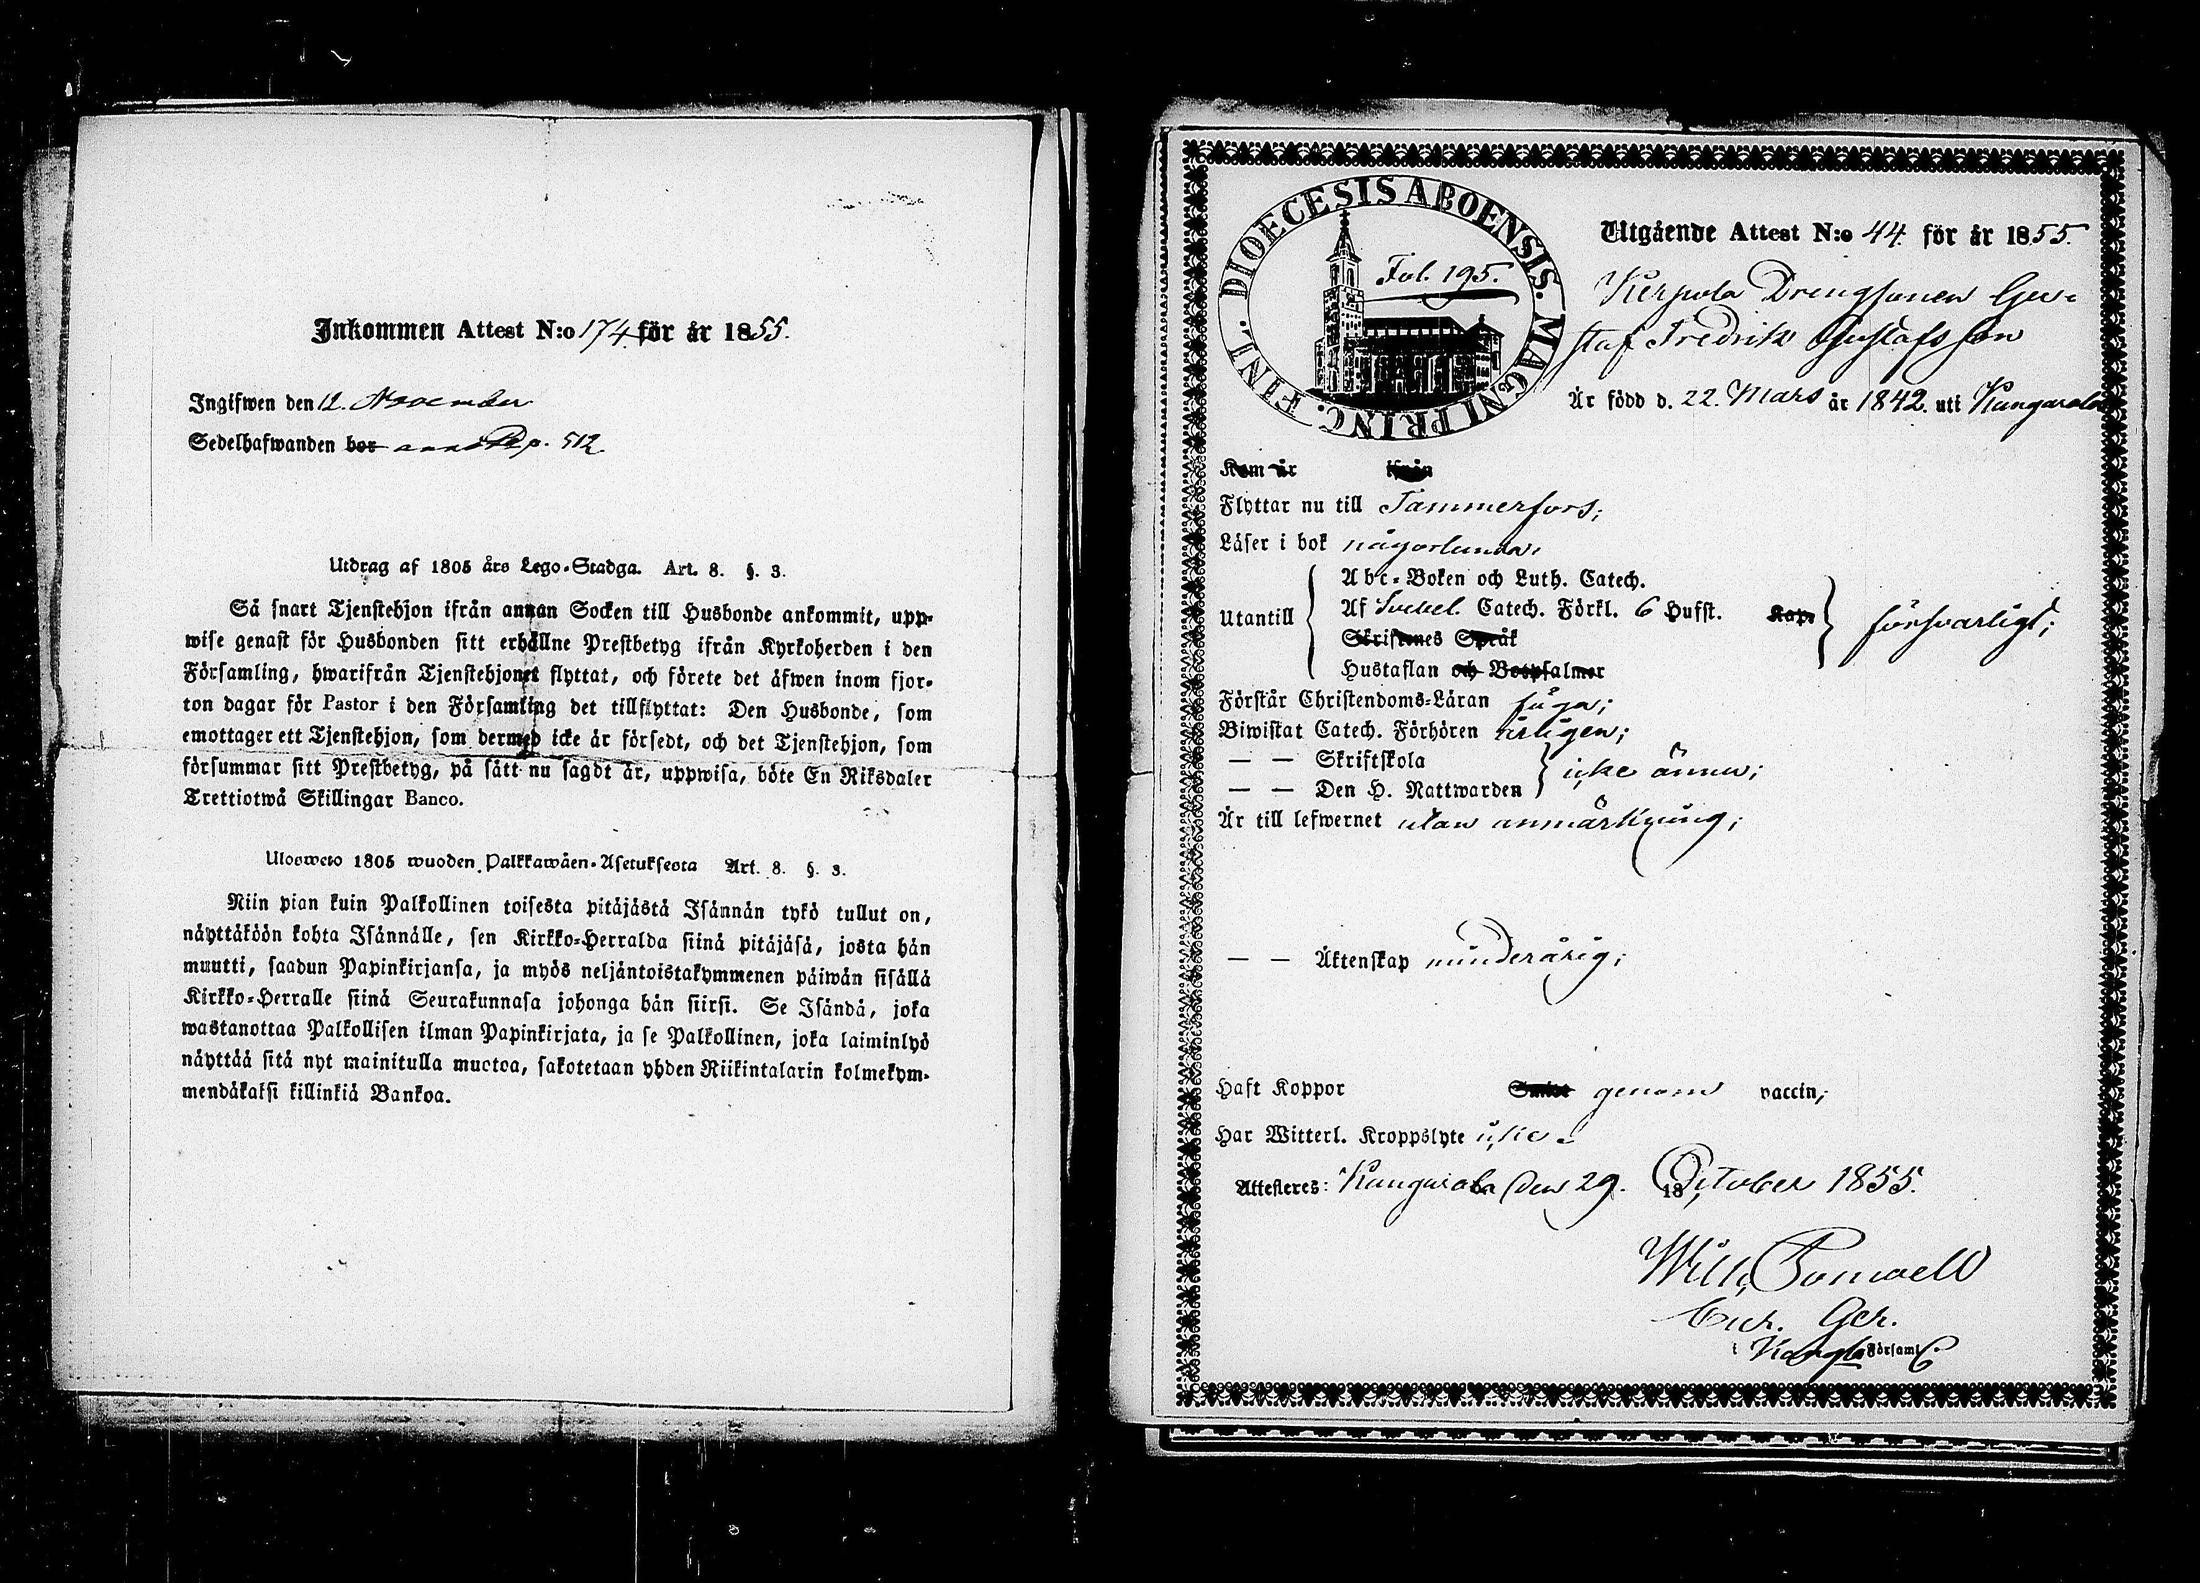 Inkommen Attest N:o 174 för år 1855.
Ingifwen den 12. November
Sedelhafwanden bor p. 512
Utdrag af 1805 års Lego-Stadga. Art. 8. §. 3.
Så snart Tjenstehjon ifrån annan Socken till Husbonde ankommit, upp-
wise genast för Husbonden sitt erhållne Prestbetyg ifrån Kyrkoherden i den
Församling, hwarifrån Tjenstehjonet flyttat, och förete det äfwen inom fjor-
ton dagar för Pastor i den Församling det tillflyttat: Den Husbonde, som
emottager ett Tjenstehjon, som dermed icke är försedt, och det Tjenstehjon, som
försummar sitt Prestbetyg, på sätt nu sagdt är, uppwisa, böte En Riksdaler
Trettiotwå Skillingar Banco.
Uloswets 1805 wuoden Palkkawäen-Asetuksesta Art. 8. §. 3.
Niin pian kuin Palkollinen toisesta pitäjästä Isännän tykö tullut on,
näyttäköön kohta Isännälle, sen Kirkko-Herralda siinä pitäjäsä, josta hän
muutti, saadun Papinkirjansa, ja myös neljäntoistakymmenen päiwän sisällä
Kirkko-Herralle siinä Seurakunnasa johonga hän siirsi. Se Isändä, joka
wastanottaa Palkollisen ilman Papinkirjata, ja se Palkollinen, joka laiminlyö
näyttää sitä nyt mainitulla muotoa, sakotetaan yhden Riikintalarin kolmekym-
mendäkaksi killinkiä Bankoa.
DIOECESIS ABOENSIS. MAGNI PRINC. FINL.
Fol. 195.
Utgående Attest N:o 44. för år 1855.
Kerpola Drengsonen Gu-
staf Fredrik Gustafsson
Är född d. 22. Mars år 1842. uti Kangasala
Kom år ifrån
Flyttar nu till Tammerfors;
Läser i bok någorlunda;
Utantill
Abc-Boken och Luth. Catech.
Af Svebel. Catech. Förkl. 6 Hufst. Kap.
Skriftenes Språk
Hustaflan och Botpsalmer
försvarligt;
Förstår Christendoms-Läran
Biwistat Catech. Förhören årligen;
— — Skriftskola
— — Den H. Nattwarden
icke ännu;
Är till lefwernet utan anmärkning;
— — Äktenskap minderårig;
Haft Koppor genom vaccin;
Har Witterl. Kroppslyte icke.
Attesteres: Kangasala den 29. 18 October 1855.
Wilh.
i Kangla Församl.